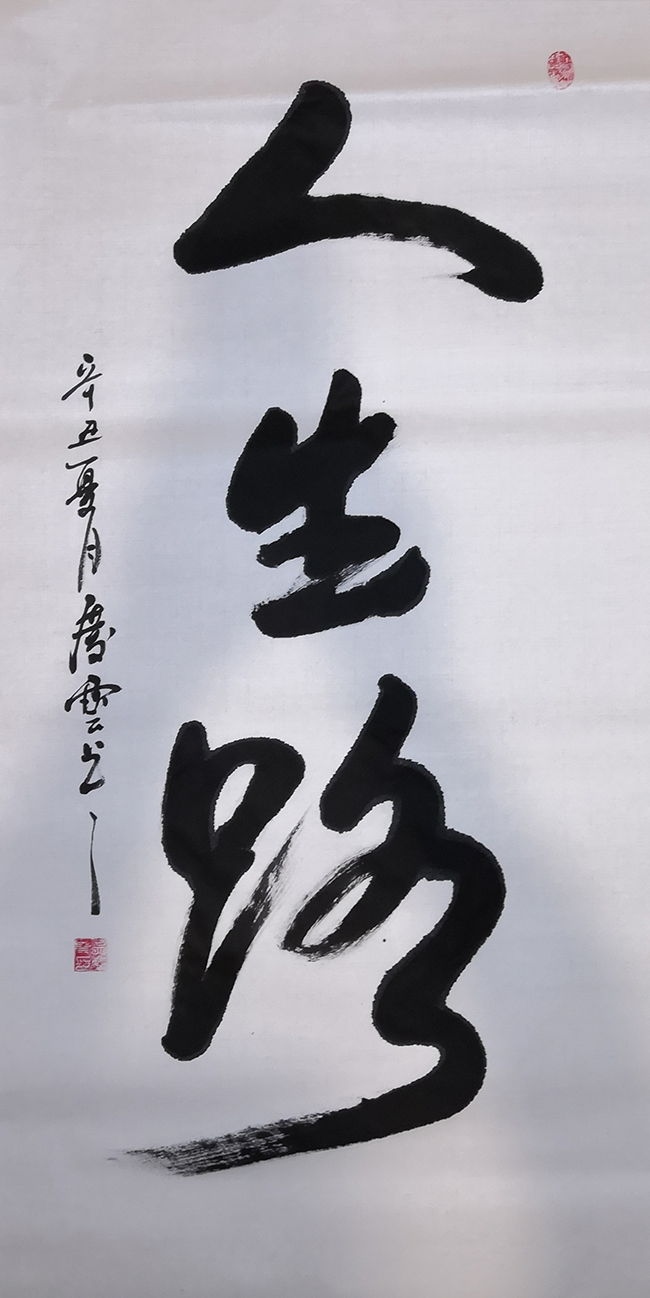 人生路
辛丑夏月慶雲书